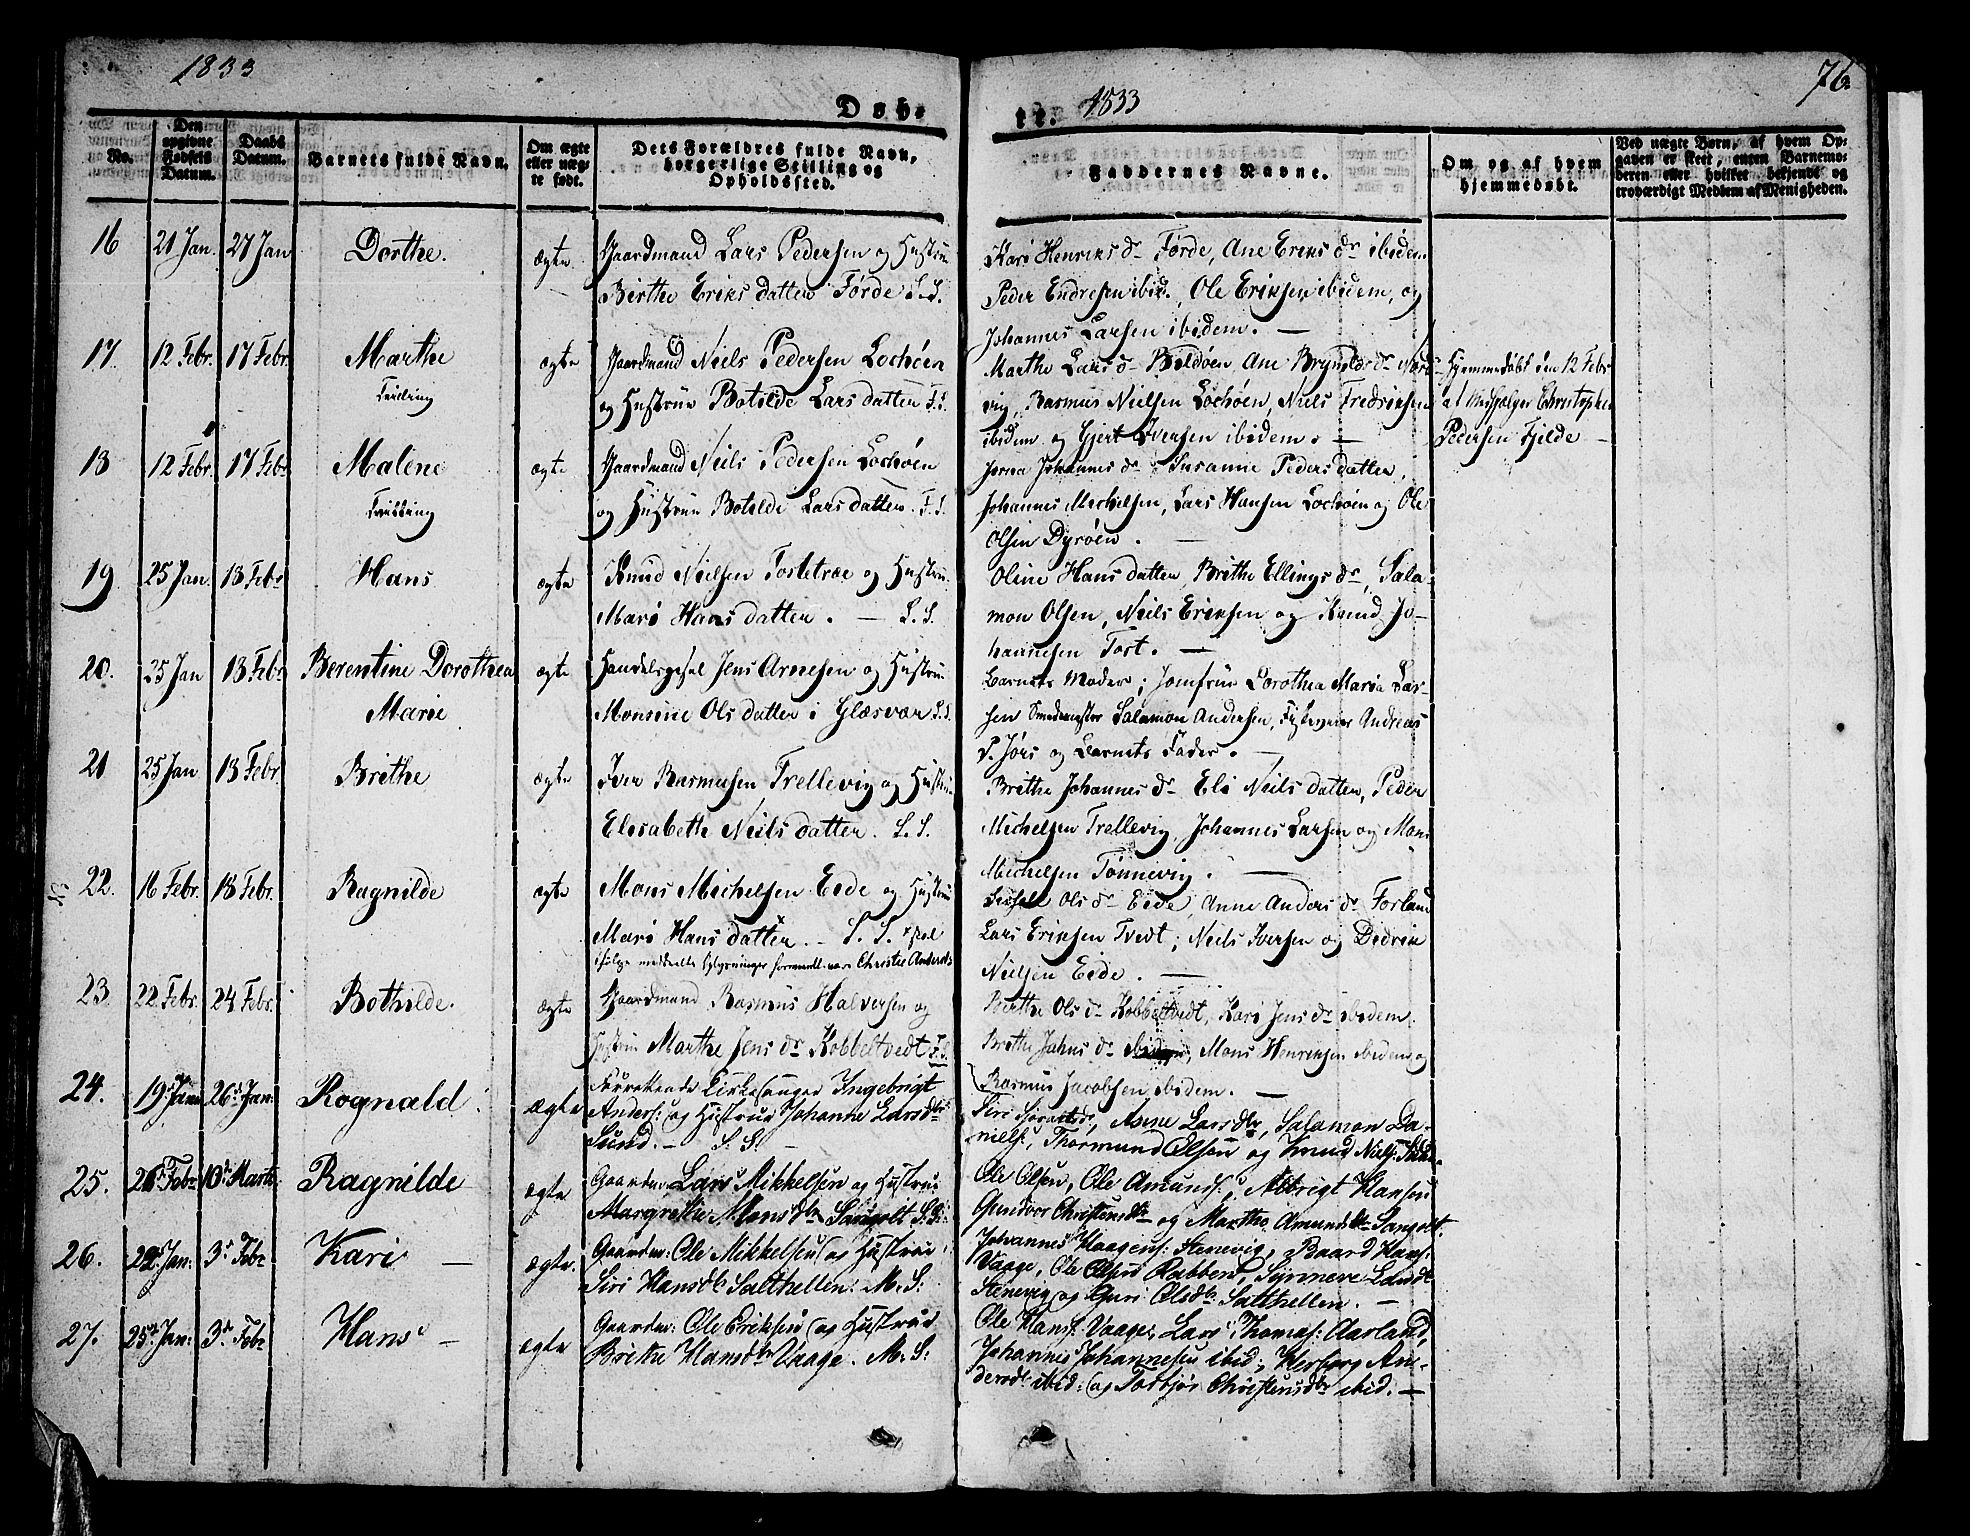 1833
Døb-
te.
1833
76.
No.
Den opgivne Fødsels Datum.
Daabs Datum.
Barnets fulde Navn.
Om ægte eller uægte født.
Dets Forældres fulde Navn, borgerlige Stilling og Opholdssted.
Faddernes Navne.
Om og af hvem hjemmedøbt.
Ved uægte Børn, af hvem Opgaven er skeet, enten Barnemoderen eller hvilket bekjendt og troværdigt Medlem af Menigheden.
16 21 Jan. 27 Jan Dorthe. ægte Gaardmand Lars Pedersen og Hustrue
Birthe Eriks datter Førde S. S.
Kari Henriks dr Førde, Ane Eriks dr ibidem
Peder Endresen ibid., Ole Eriksen ibidem, og
Johannes Larsen ibidem. —
17. 12 Febr. 17 Febr. Marthe ægte Gaardmand Niels Pedersen Lochøen
Tvilling og Hustrue Botilde Lars datter F. S.
Marthe Lars d Boldøen, Ane Brynilds dr
vig, Rasmus Nielsen Lochøen, Niels Fredriksen
ibidem og Gjert Iversen ibidem. —
Hjemmedøbt den 12 Febr
af Medhjelper Christopher
Pedersen Fjelde —
18 12 Febr. 17 Febr Malene ægte Gaardmand Niels Pedersen Lochøen
Tvilling og Hustrue Botilde Lars datter. F. S.
Johannes dr Susanne Peders datter,
Johannes Mechelsen, Lars Hansen Lochøen og Ole
Olsen Dyrøen. —
19 25 Jan. 13 Febr Hans ægte Knud Nielsen Tostetræe og Hustrue
Mari Hans datter. — S. S.
Oline Hans datter, Brithe Ellings dr, Sala-
mon Olsen, Niels Eriksen og Knud Jo-
hannesen Tost. —
20. 25 Jan 13 Febr Berentine Dorothea ægte Handelsgesel Jens Arnesen og Hustrue
Marie Monsine Ols datter i Glæsvær S. S.
Barnets Moder; Jomfrue Dorothea Maria Lar-
sen Smedemester Salamon Andersen, Andreas
P. Jørs og Barnets Fader. —
21 25 Jan 13 Febr. Brithe ægte Iver Rasmusen Trellevig og Hustrue
Elisabethe Niels datter. S. S.
Brithe Johannes dr Eli Niels datter, Peder
Michelsen Trellevig, Johannes Larsen og Mons
Michelsen Tønnevig. —
22. 16 Febr. 18 Febr. Ragnilde ægte Mons Michelsen Eide og Hustrue
Mari Hans datter. — S. S.
Ols dr Eide, Anne Anders dr Forland
Lars Eriksen Tvedt; Niels Iversen og Didrik
Nielsen Eide. —
23. 22 Febr. 24 Febr. Bothilde. ægte Gaardmand Rasmus Halversen og
Hustrue Marthe Jens dr Kobbeltvedt F. S.
Berthe Ols dr Kobbeltvedt, Kari Jens dr ibidem,
Brithe Johns dr ibidem, Mons Henriksen ibidem og
Rasmus Jacobsen ibidem. —
24. 19 Jan 26 Jan: Rognald. ægte Forrettende Kirkesanger Ingebrigt
Anders: og Hustrue Johanne Larsdtr
Sund. — S. S. —
Siri Sjovatsdr, Anne Larsdtr, Salamon Da-
niels:, Thormund Olsen og Knud Niels:
25. 26 Febr 10 Marts Ragnilde ægte Gaardm: Lars Mikkelsen og Hustrue
Margrethe Monsdtr Sangolt S. S:
Ole Olsen, Ole Amunds:, Albrigt Hansen
Gundvor Christensdtr og Marthe Amundsdtr Sangolt.
26. 22 Jan: 3 Febr Kari — ægte. Gaardm: Ole Mikkelsen og Hustrue
Siri Hansdtr Salthellen. M. S:
Johannes Haagens: Stenevig, Baard Hans:
Vaage, Ole Olsen Rabben, Synneve Larsdtr
Stenevig og Guri Olsdtr Salthellen. —
27. 25 Jan: 3 Febr Hans — ægte Gaardm: Ole Eriksen og Hustrue
Brithe Hansdtr Vaage. M. S:
Ole Hans: Vaage, Lars Thomas: Aarland,
Johannes Johannesen ibid:, Herborg An-
dersdtr ibid: og Torbjør Christensdtr ibid. —